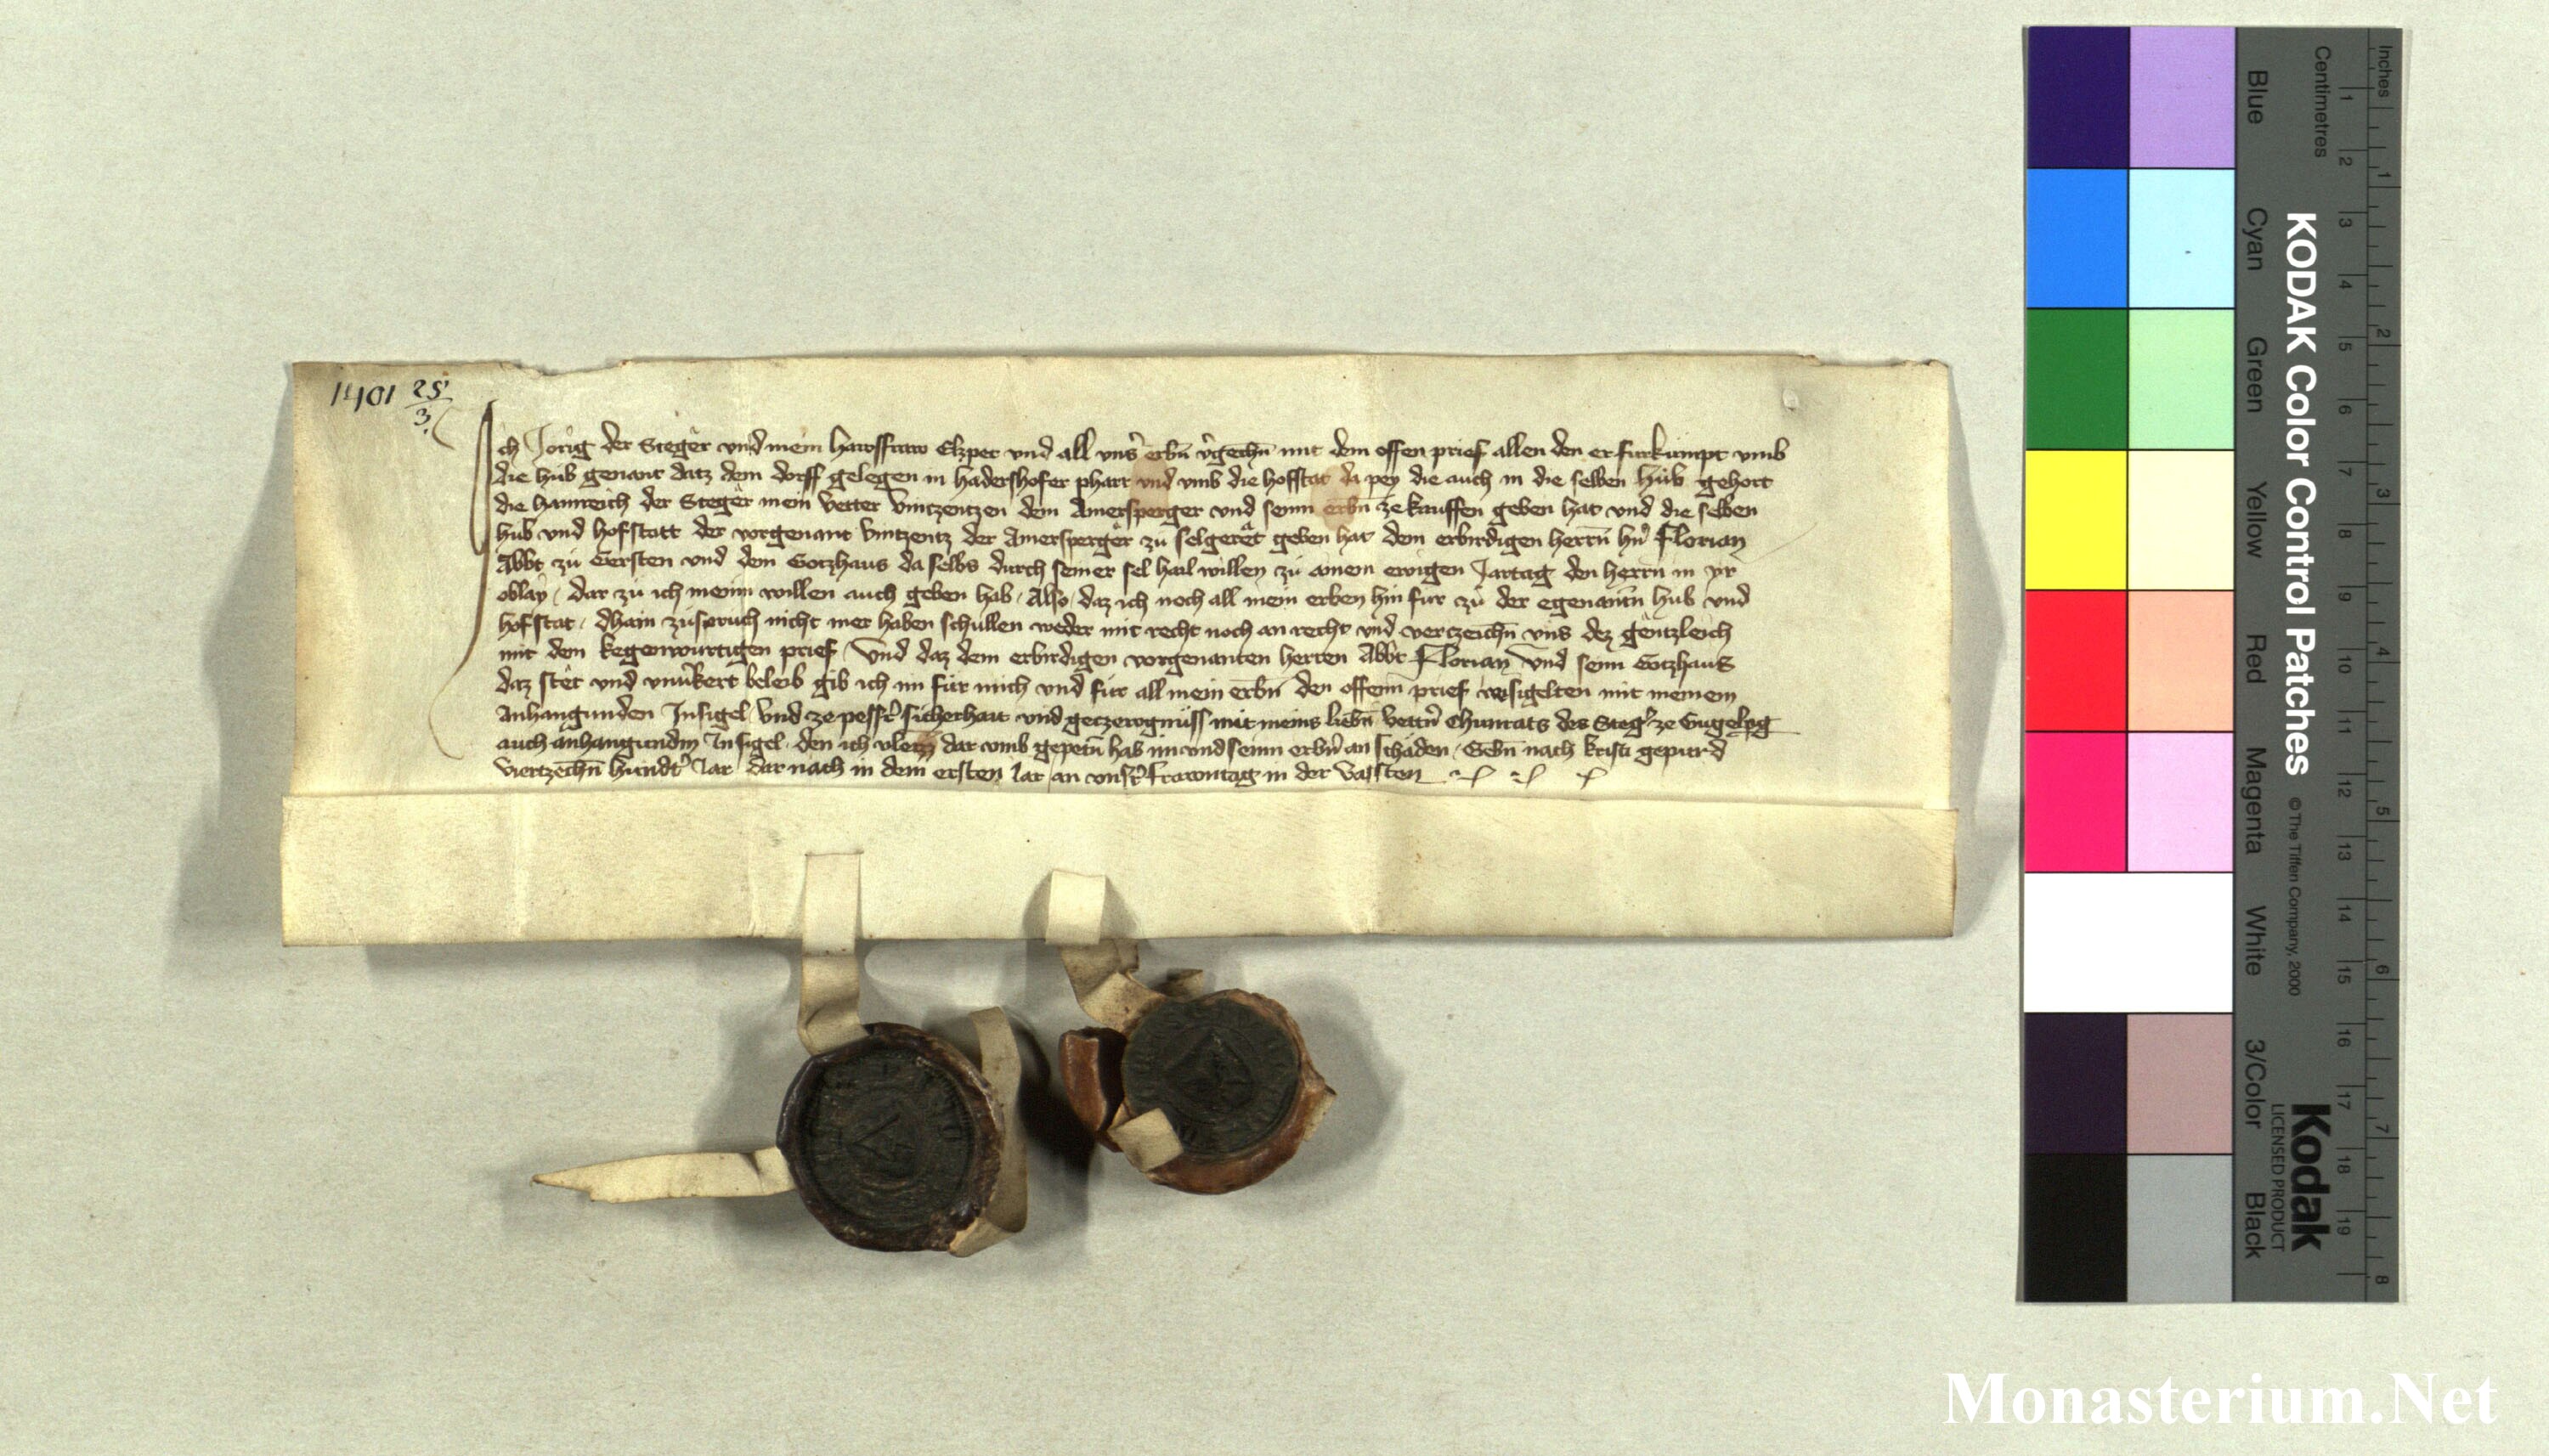 1401 25/3.
Ich Jorig der Steger vnd mein hawsfraw Elzpet vnd all vnsˀ erbn̄ vˀgechn̄ mit dem offen prief allen den er furkumpt vmb
die hub genant datz dem dorff gelegen in hadershofer pharr vnd vmb die hofstat da pey die auch in die selben hub gehort
die hainreich der Steger mein vetter vintzentzen dem Amersperger vnd seinn erbn̄ ze kauffen geben hat vnd die selben
hub vnd hofstatt der vorgenant vintzentz der Amersperger zu selgeret geben hat dem erbirdigen herrn̄ hnˀ Florian
Abbt zu Gersten vnd dem Gotzhaus da selbs durch seiner sel hail willen zu ainem ewigen Jartag den herrn in yr
oblay / dar zu ich meinn willen auch geben hab / Also / daz ich noch all mein erben hin fur zu der egenantn̄ hub vnd
hofstat / dhain zuspruch nicht mer haben schullen weder mit recht noch an recht vnd vertzeichn̄ vns dez gentzleich
mit dem kegenwurtigen prief / Vnd daz dem erbirdigen vorgenanten herren Abbt Florian vnd seim Gotzhaus
daz stet vnd vnuˀkert beleib gib ich im für mich vnd für all mein erbn̄ den offenn prief versigelten mit meinem
Anhangunden Insigel / vnd ze pessrˀ sicherhait vnd getzewgnüss mit meins liebn̄ vettnˀ Chunrats des Stegˀ ze
auch anhangundm Insigel / den ich vleizz dar vmb gepetn̄ hab im vnd seinn erbnˀ an schäden / Gebn̄ nach kristi gepurd
viertzechn̄ hundtˀ Jar dar nach in dem ersten Jar an vnsrˀ frawntag in der vassten
KODAK Color Control Patches © The Tiffen Company, 2000
Kodak
LICENSED PRODUCT
Blue Cyan Green Yellow Red Magenta White 3/Color Black
Centimetres 1 2 3 4 5 6 7 8 9 10 11 12 13 14 15 16 17 18 19
Inches 1 2 3 4 5 6 7 8
Monasterium.Net